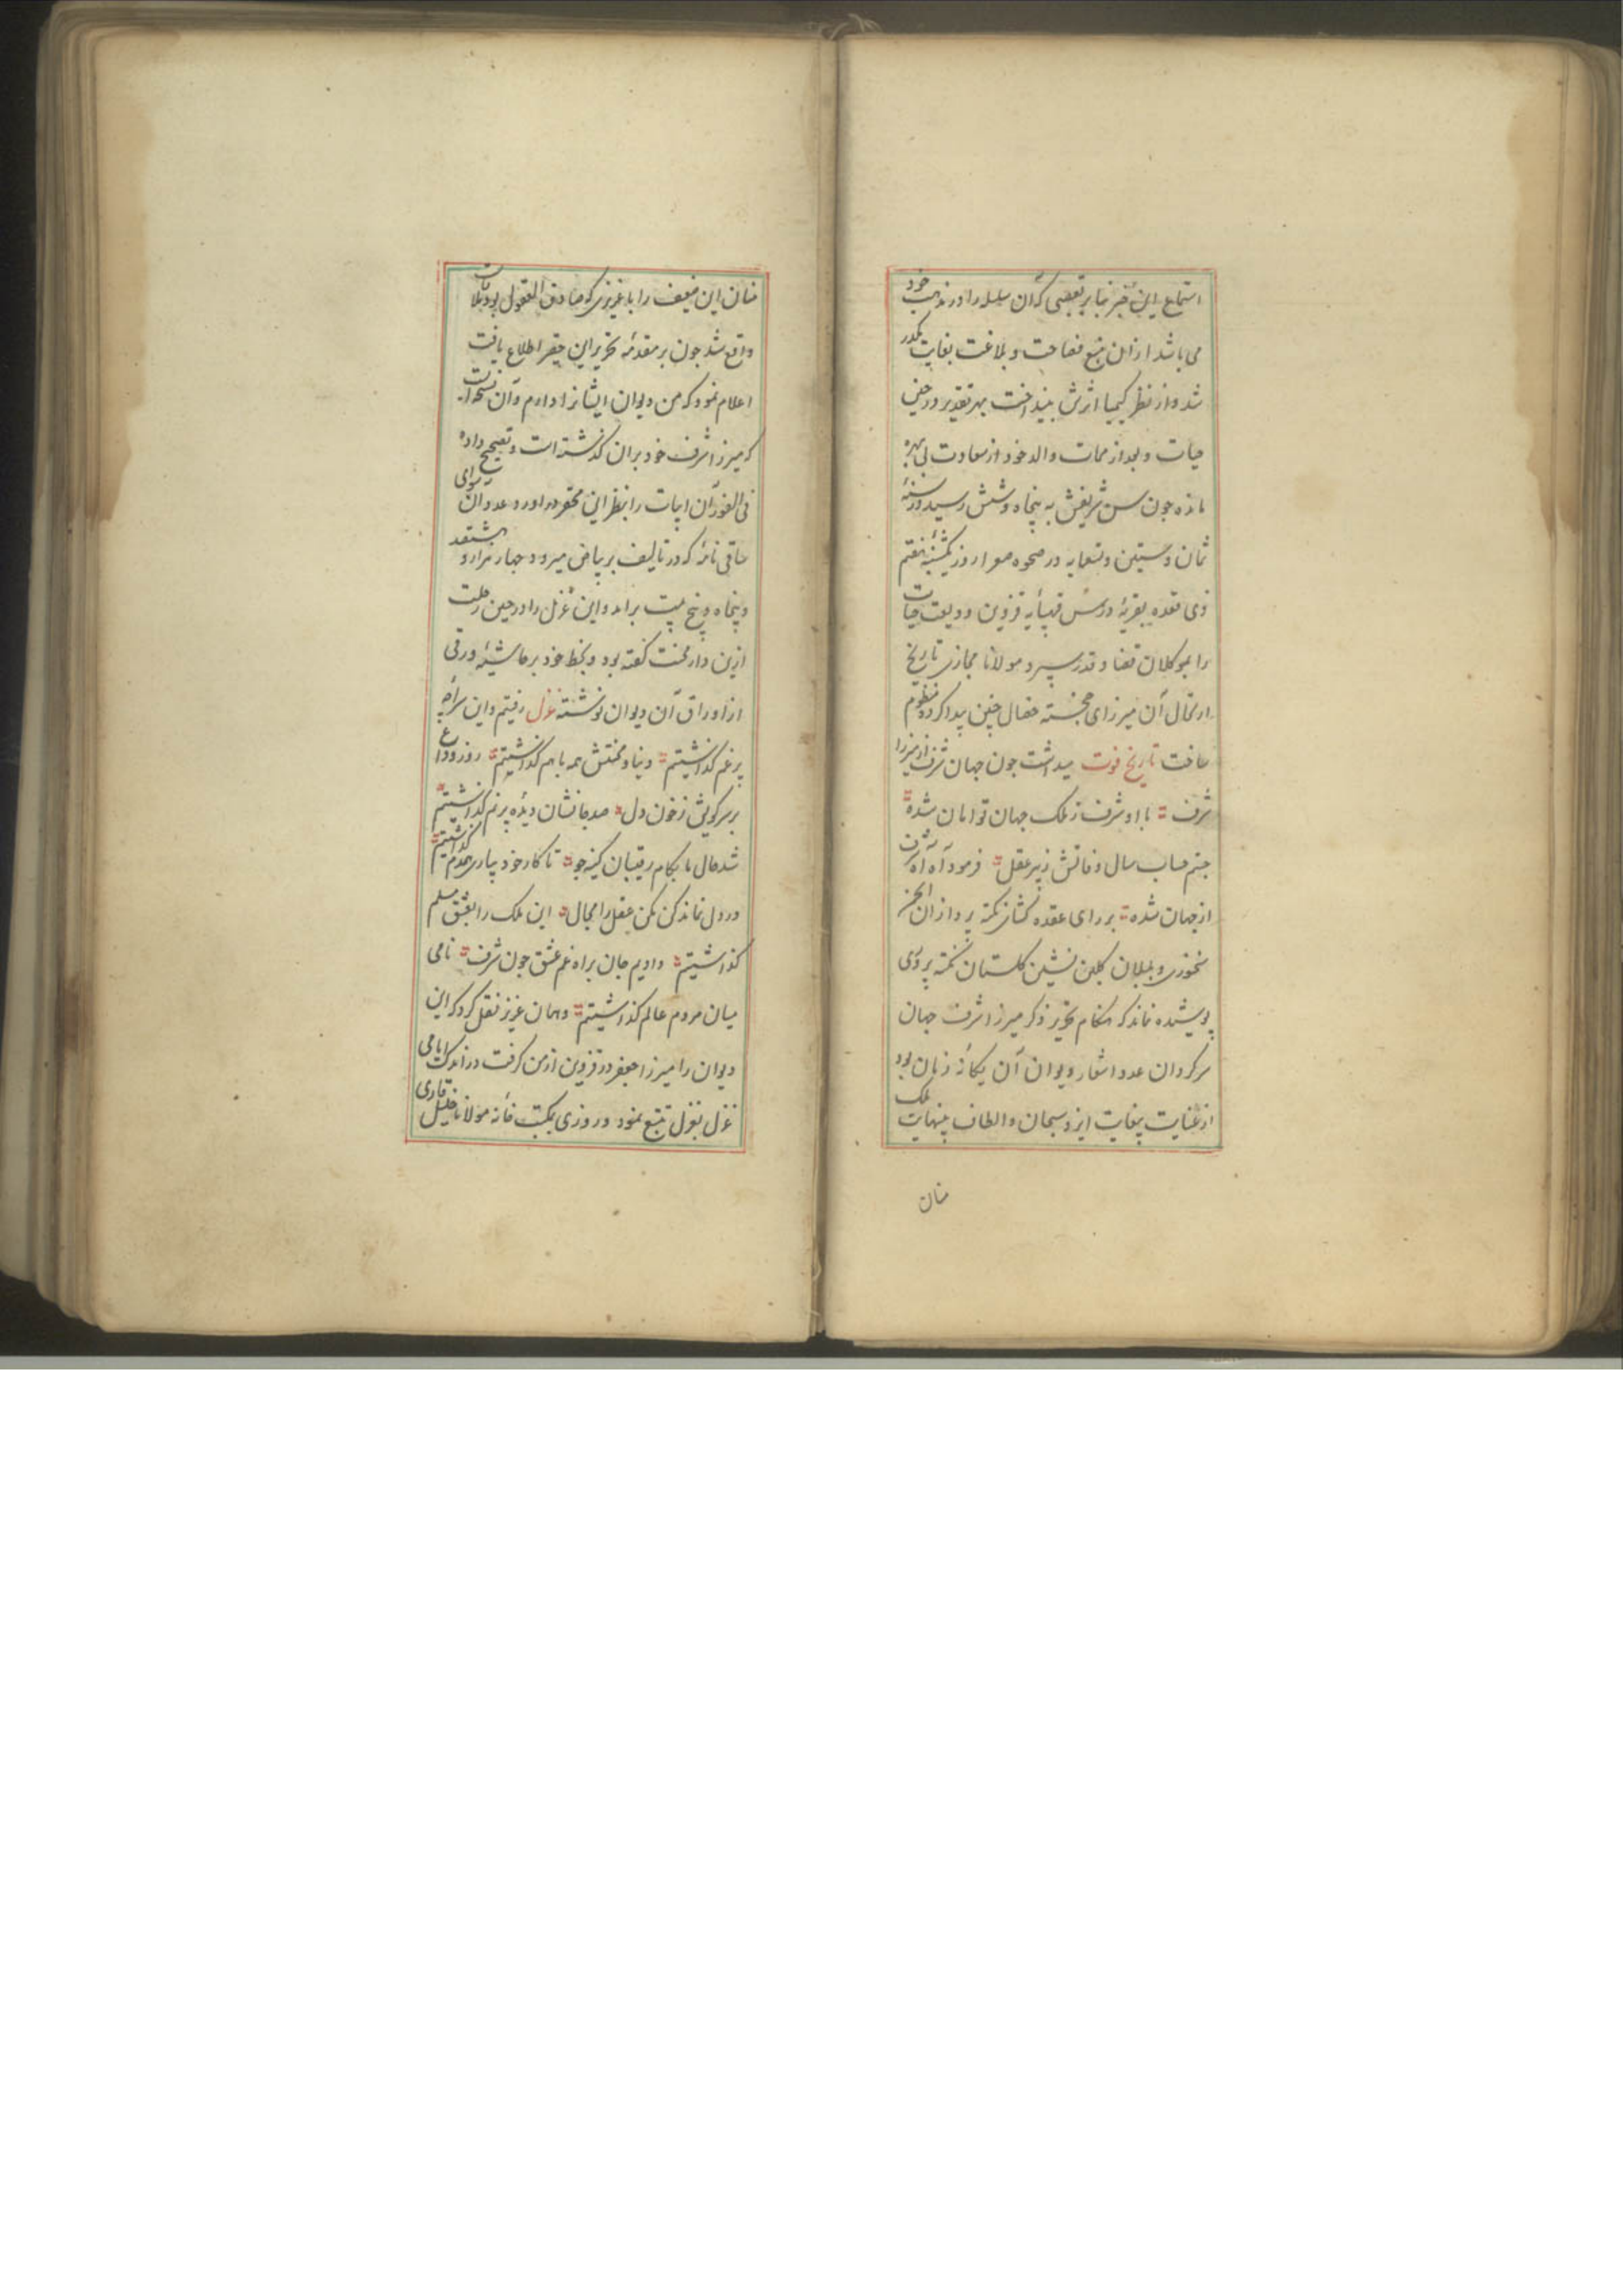 استماع این خبر بنابر تعصبی که آن سلسله را در مذهب خود
می باشد از آن منبع فصاحت و بلاغت بغایت مکدر
شد و از نظر کیمیا اثرش بینداخت بهر تقدیر در حین
حیات و بعد از ممات والد خود از سعادت بی بهره
مانده چون سن شریفش به پنجاه و شش رسید در سنهٔ
ثمان و ستین و تسعمایه در صحوه روز یکشنبه هفتم
ذی قعده بقریهٔ قهپایه قزوین ودیعت حیات
را بموکلان قضا و قدر سپرد مولانا مجازی تاریخ
ارتحال آن میرزای خجسته خصال چنین پیدا کرده منظوم
ساخت تاریخ فوت میداشت چون جهان شرف از میرزا
شرف با او شرف ز ملک جهان توامان شده
جستم حساب سال وفاتش ز پیر عقل فرمود آه آه شرف
از جهان شده بر رای عقده گشای نکته پردازان انجمن
سخنوری و بلبلان گلبن نشین گلستان نکته پروری
پوشیده نماند که هنگام تحریر ذکر میرزا شرف جهان
سرگردان عدد اشعار دیوان آن یگانه زمان بود
از عنایت بیغایت ایزد سبحان و الطاف بینهایت ملک
منان
منان این ضعیف را با عزیزی که صادق القول بود ملاقات
واقع شد چون بر مقدمه تحریر این حقیر اطلاع یافت
اعلام نمود که من دیوان ایشانرا دارم و آن نسخه ایست
که میرزا شرف خود بران گذشته است و تصحیح داده
فی الفور آن ابیات را بنظر این محقر در اورد و عدد آن سوای
ساقی نامه که در تالیف بر بیاض میرود چهار هزار و هشتصد
و پنجاه و پنج بیت برامد و این غزل را در حین رحلت
ازین دار محنت گفته بود و بخط خود بر حاشیه ورقی
از اوراق آن دیوان نوشته غزل رفتیم و این سراچه
پر غم گذاشتیم دنیا و محنتش همه با هم گذاشتیم روز وداع
بر سر کویش ز خون دل صد جا نشان دیده پر نم گذاشتیم
شد حال ما بکام رقیبان کینه جو تا کار خود بیاری همدم گذاشتیم
در دل نماند کن مکن عقل را مجال این ملک را بعشق مسلم
گذاشتیم دادیم جان براه غم عشق چون شرف نامی
میان مردم عالم گذاشتیم و همان عزیز نقل کرد که این
دیوان را میرزا جعفر در قزوین از من گرفت در اندک ایامی
غزل بغزل تتبع نمود و روزی بمکتب خانه مولانا خلیل قاری